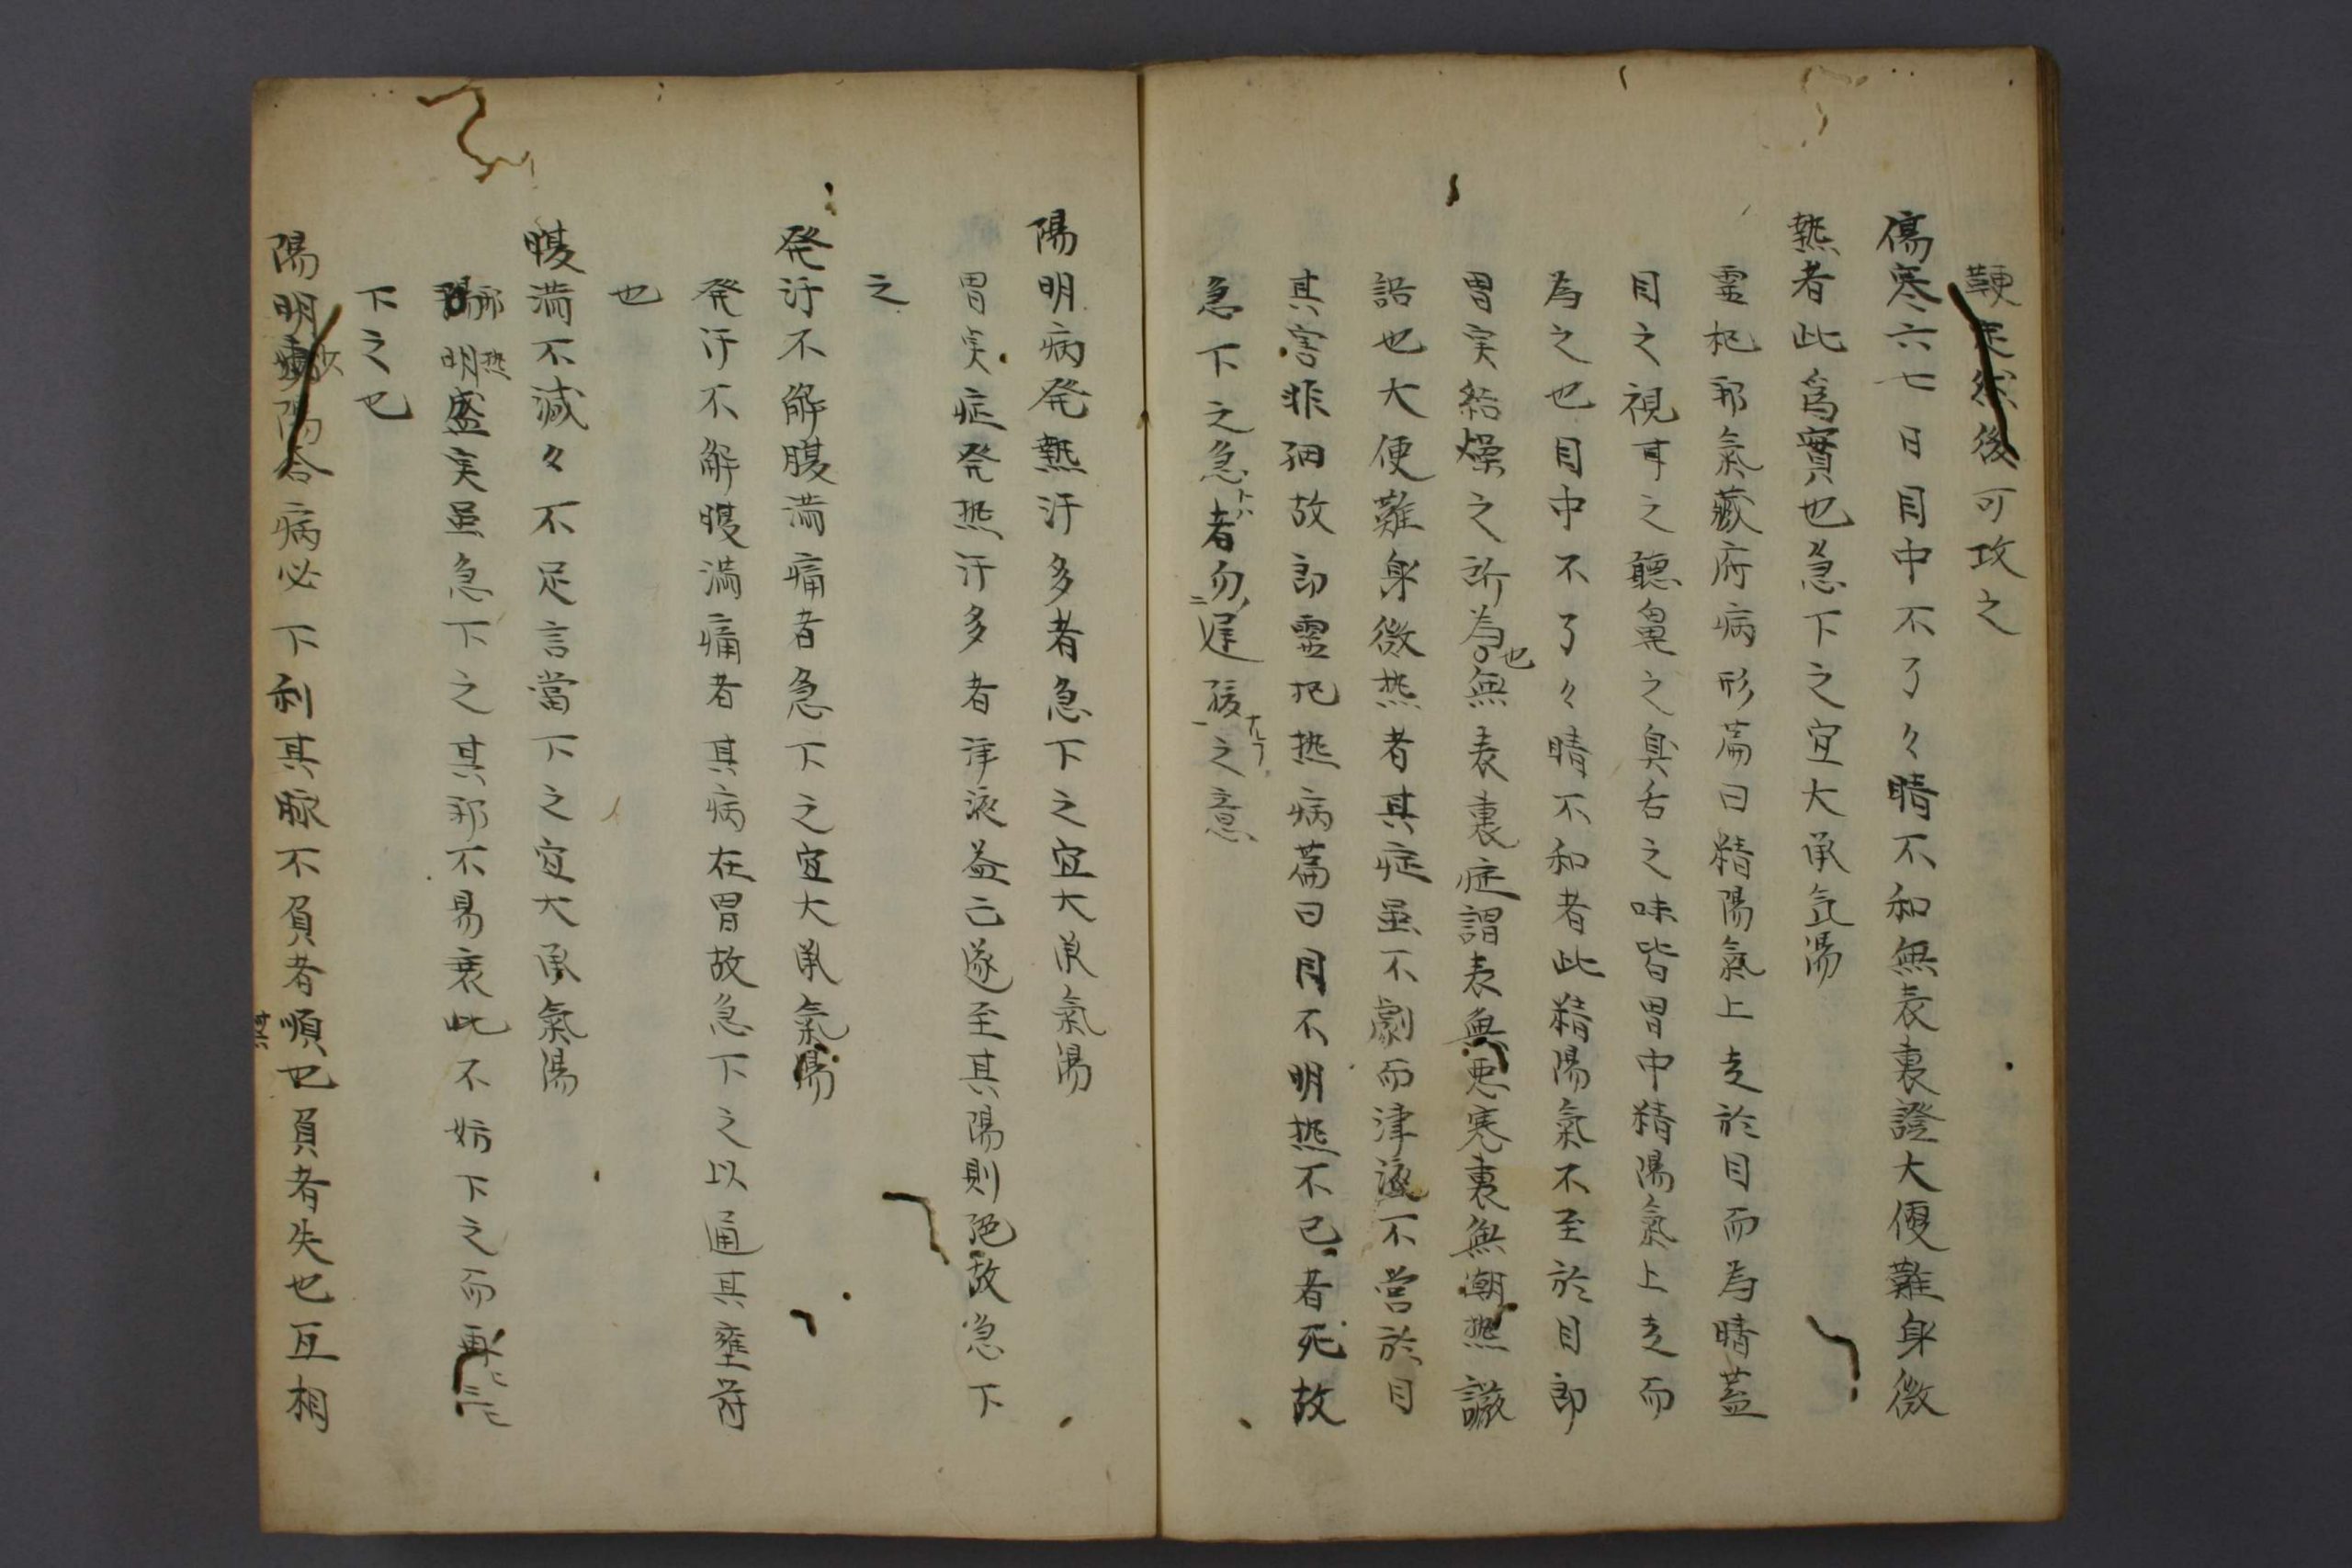 鞕定然後可攻之
傷寒六七日目中不了々睛不和無表裏證大便難身微
熱者此爲實也急下之宜大承气湯
霊枢邪氣蔵府病形萹曰精陽氣上走於目而為睛蓋
目之視耳之聽鼻之臭舌之味皆胃中精陽氣上走而
為之也目中不了々睛不和者此精陽氣不至於目即
胃実結燥之所為也無表裏症謂表無悪寒裏無潮热譫
語也大便難身微热者其症虽不劇而津液不营於目
其害非細故即霊枢热病萹曰目不明热不已者死故
急下之急トハ者勿二遅緩一ナルフ之意
陽明病発熱汗多者急下之宜大承氣湯
胃実症発热汗多者津液益亡遂至其陽則绝故急下
之
発汗不解腹満痛者急下之宜大承氣湯
発汗不解腹満痛者其病在胃故急下之以通其壅欝
也
腹満不減々不足言當下之宜大承氣湯
邪热盛実虽急下之其邪不易衰此不妨下之而再三
下之也
陽明少陽合病必下利其脈不負者順也負者失也互相